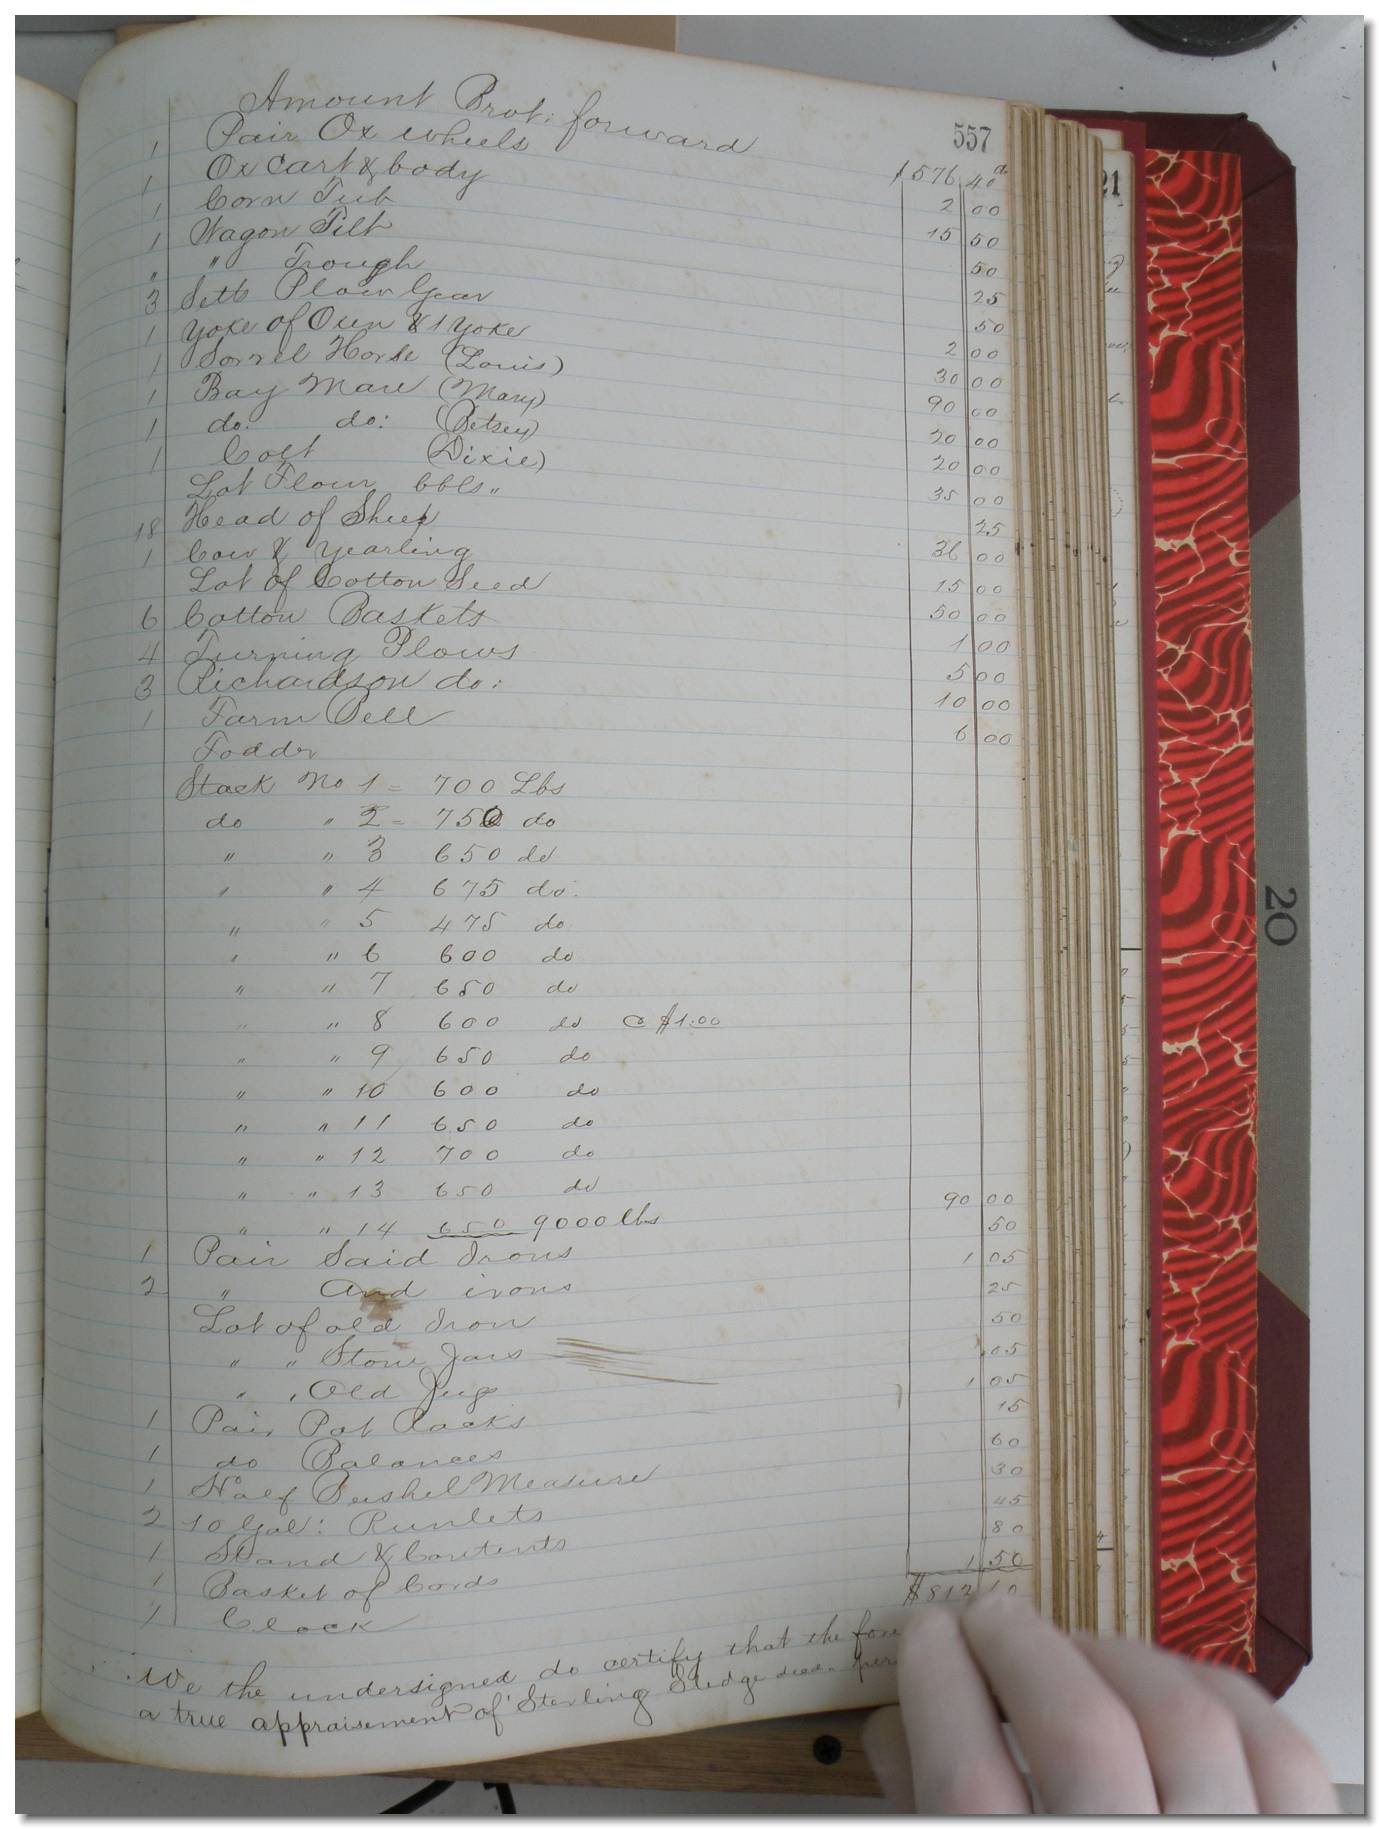 557
Amount Brot. forward $576 40
1 Pair Ox wheels 2 00
1 Ox Cart & body 15 50
1 Corn Tub 50
1 Wagon Tilt 25
" " Trough 50
3 Setts Plow Gear 2 00
1 Yoke of Oxen & 1 Yoke 30 00
1 Sorrel Horse (Louis) 90 00
1 Bay Mare (Mary) 20 00
1 do. do: (Betsey) 20 00
1 Colt (Dixie) 35 00
Lot Flour bbls " 25
18 Head of Sheep 36 00
1 Cow & Yearling 15 00
Lot of Cotton Seed 50 00
6 Cotton Baskets 1 00
4 Turning Plows 5 00
3 Richardson do: 10 00
1 Farm Bell 6 00
Fodder
Stack No 1 = 700 Lbs
do " 2 = 750 do
" " 3 650 do
" " 4 675 do.
" " 5 475 do
" " 6 600 do
" " 7 650 do
" " 8 600 do @ $1.00
" " 9 650 do
" " 10 600 do
" " 11 650 do
" " 12 700 do
" " 13 650 do
" " 14 650 9000 lbs 90 00
1 Pair Said Irons 50
2 " And irons 1 05
Lot of old Iron 25
" " Stone Jars 50
" " Old Jugs 05
1 Pair Pot Racks 1 05
1 do Balances 15
1 Half Bushel Measure 60
2 10 Gal: Runlets 30
1 Stand & Contents 45
1 Basket of Cords 80
1 Clock 1 50
$812 10
We the undersigned do certify that the
a true appraisement of Sterling Sledge decd.
21
20